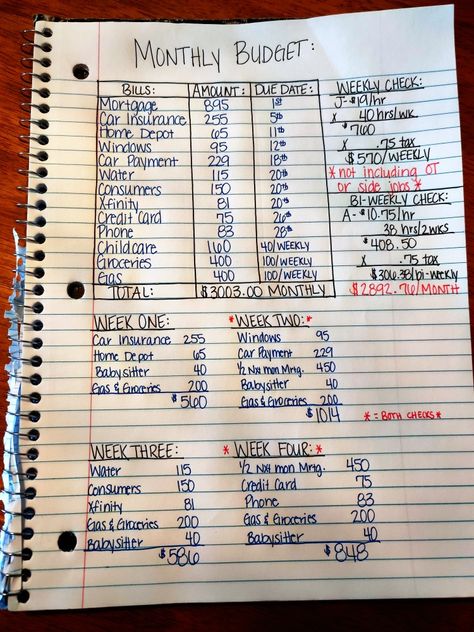 MONTHLY BUDGET:
BILLS: AMOUNT: DUE DATE:
Mortgage 895 1st
Car Insurance 255 5th
Home Depot 65 11th
Windows 95 12th
Car Payment 229 18th
Water 115 20th
Consumers 150 20th
Xfinity 81 20th
Credit Card 75 26th
Phone 83 28th
Childcare 160 40/WEEKLY
Groceries 400 100/WEEKLY
Gas 400 100/WEEKLY
TOTAL: $3003.00 MONTHLY
WEEKLY CHECK:
J- $19/hr
x 40 hrs/wk
$760
x .75 tax
$570/WEEKLY
*not including OT
or side jobs*
BI-WEEKLY CHECK:
A- $10.75/hr
38 hrs/2wks
$408.50
x .75 tax
$306.38/bi-weekly
$2892.76/MONTH
WEEK ONE:
Car Insurance 255
Home Depot 65
Babysitter 40
Gas & Groceries 200
$560
*WEEK TWO:*
Windows 95
Car Payment 229
1/2 Nxt mon Mrtg. 450
Babysitter 40
Gas & Groceries 200
$1014
* = BOTH CHECKS*
WEEK THREE:
Water 115
Consumers 150
Xfinity 81
Gas & Groceries 200
Babysitter 40
$586
*WEEK FOUR:*
1/2 Nxt mon Mrtg. 450
Credit Card 75
Phone 83
Gas & Groceries 200
Babysitter 40
$848